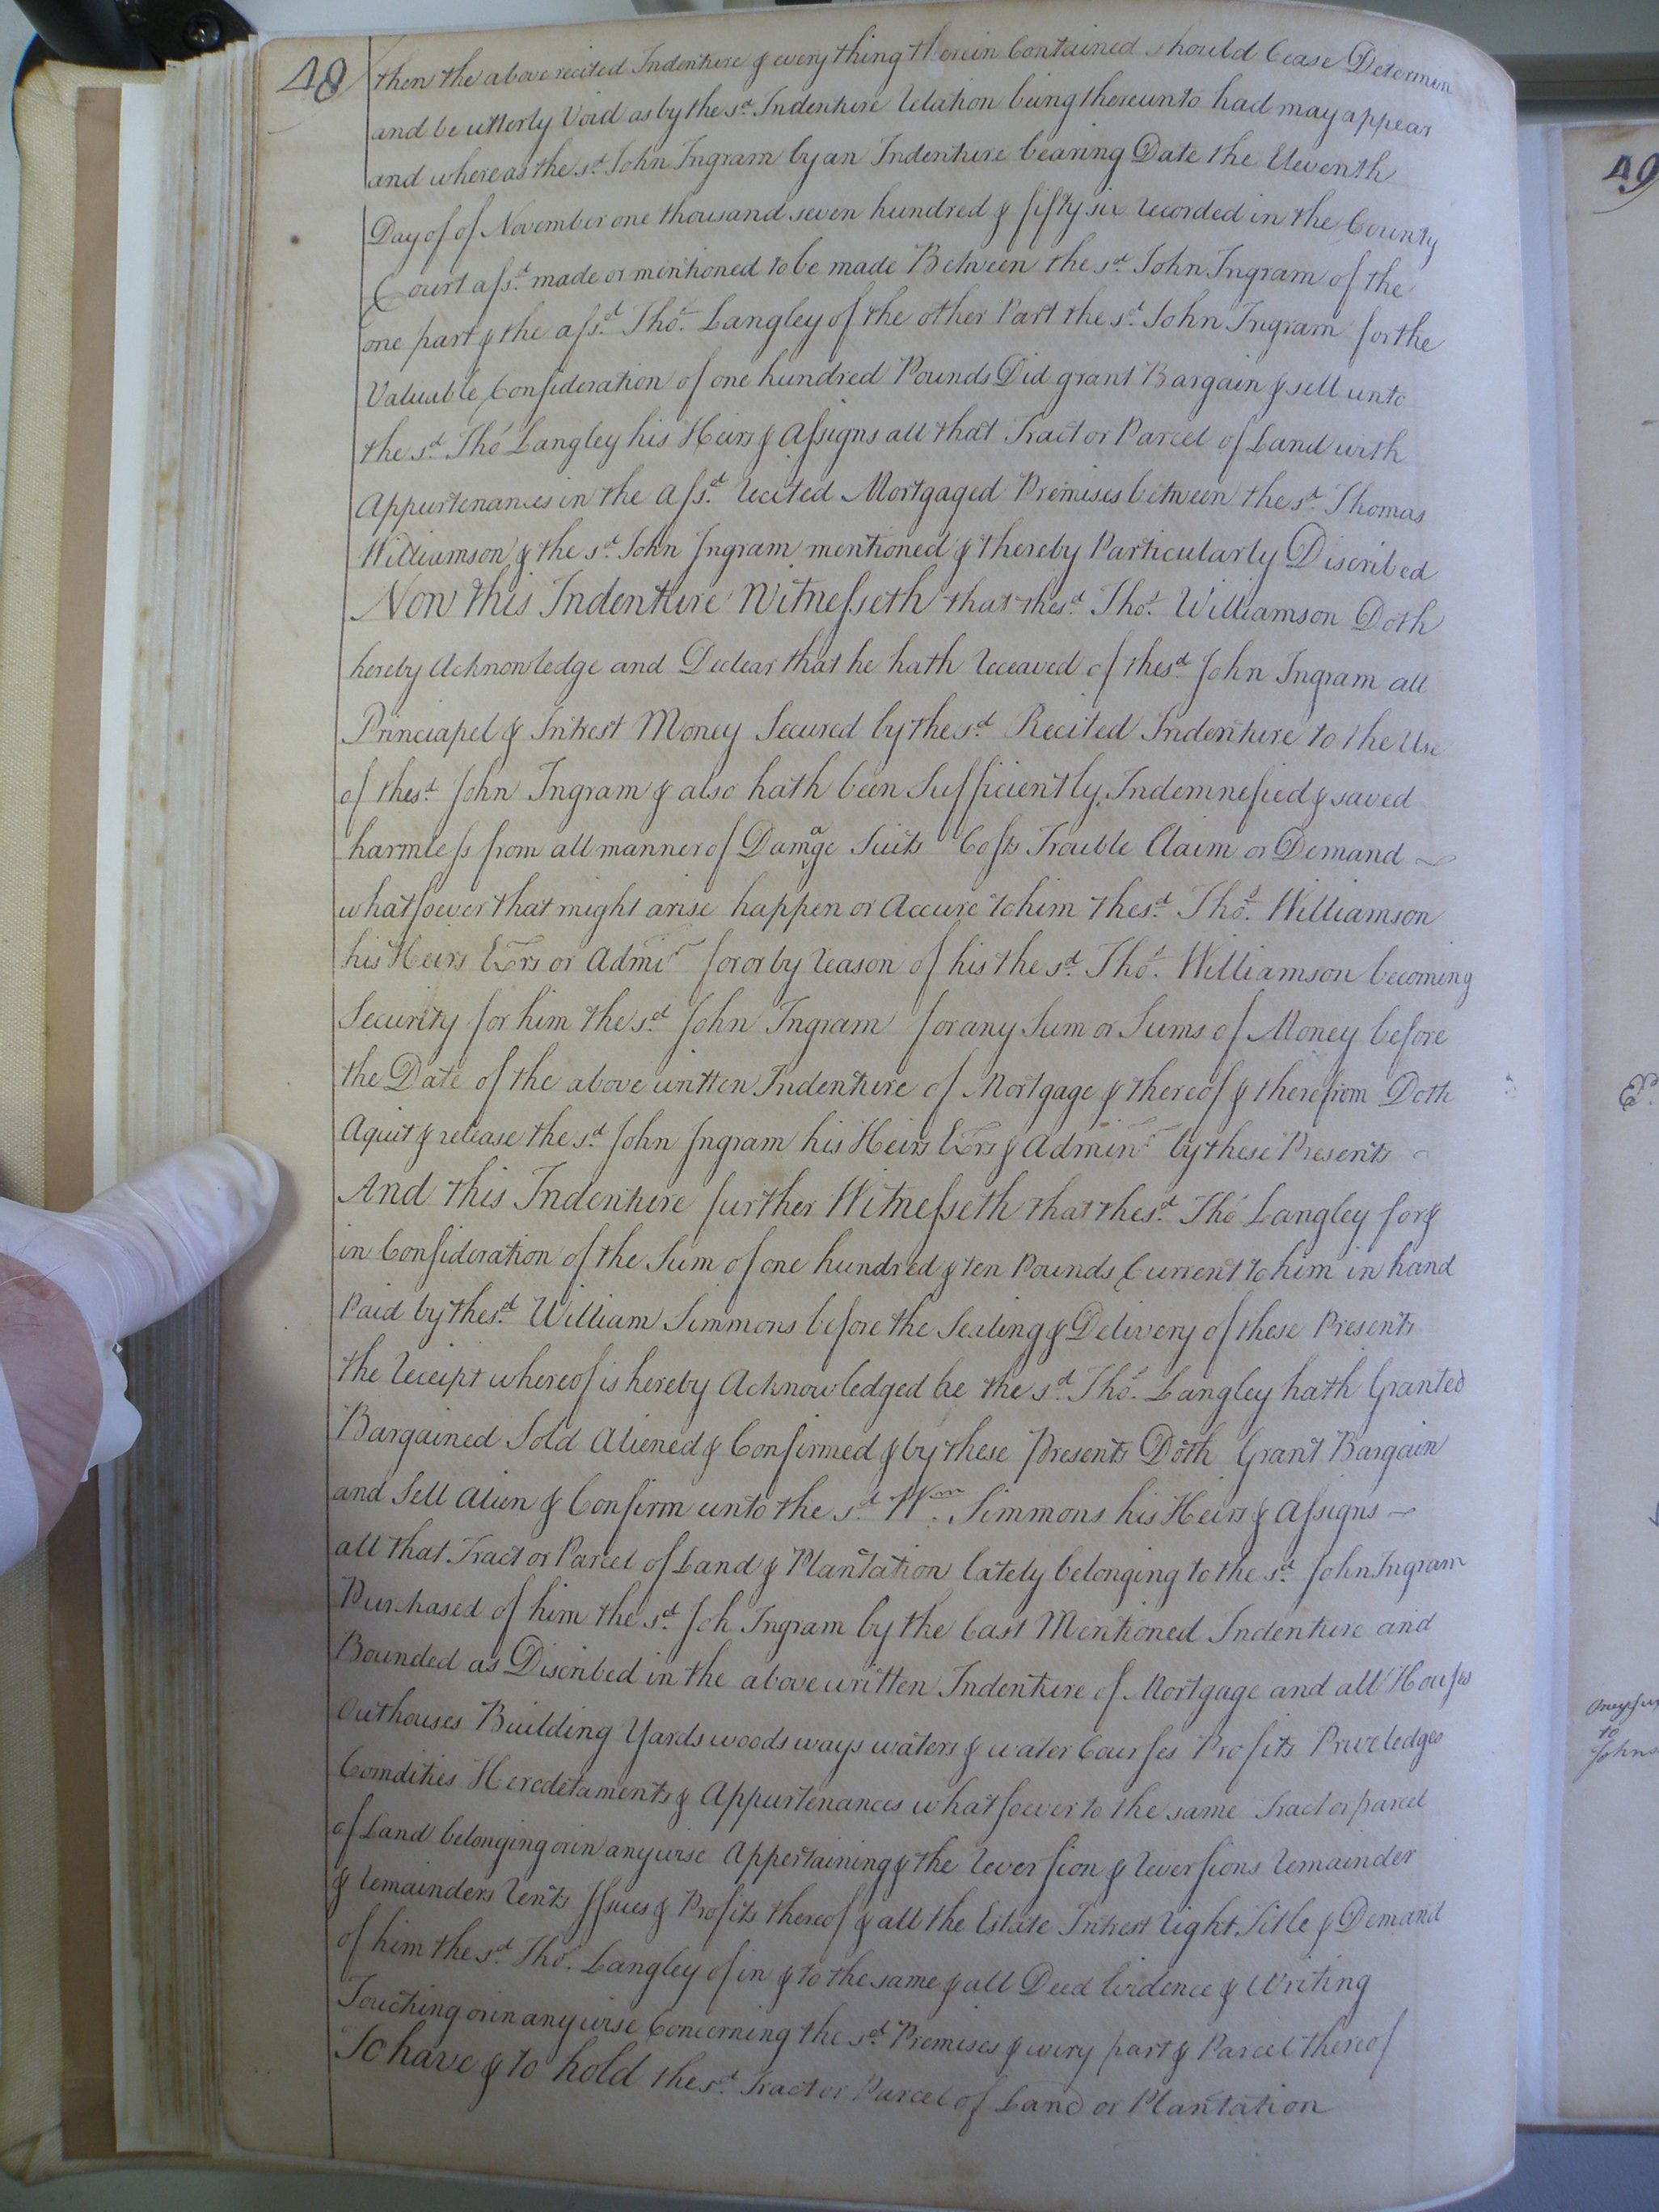 48
then the above recited Indenture & every thing therein Contained should Cease Determin
and be utterly Void as by the sd. Indenture relation being thereunto had may appear
and whereas the sd. John Ingram by an Indenture bearing Date the Eleventh
Day of of November one thousand seven hundred & fifty six recorded in the County
Court afsd. made or mentioned to be made Between the sd. John Ingram of the
one part & the afsd. Thos. Langley of the other Part the sd. John Ingram for the
Valuable Consideration of one hundred Pounds Did grant Bargain & sell unto
the sd. Tho Langley his Heirs & Assigns all that Tract or Parcel of Land with
Appurtenances in the afsd. recited Mortgaged Premises between the sd. Thomas
Williamson & the sd. John Ingram mentioned & thereby Particularly Discribed
Now this Indenture Witnesseth that the sd. Thos. Williamson Doth
hereby Acknowledge and Declear that he hath receaved of the sd. John Ingram all
Princiapel & Intrest Money Secured by the sd. Recited Indenture to the Use
of the sd. John Ingram & also hath been Sufficiently Indemnefied & saved
harmless from all manner of Damage Suits Costs Trouble Claim or Demand
whatsoever that might arise happen or Accure to him the sd. Thos. Williamson
his Heirs Exrs or Admrs for or by reason of his the sd. Thos. Williamson becoming
Security for him the sd. John Ingram for any Sum or Sums of Money before
the Date of the above written Indenture of Mortgage & thereof & therefrom Doth
Aquit & release the sd. John Ingram his Heirs Exrs & Adminrs by these Presents
And this Indenture further Witnesseth that the sd. Tho Langley for &
in Consideration of the Sum of one hundred & ten Pounds Current to him in hand
Paid by the sd. William Simmons before the Sealing & Delivery of these Presents
the receipt whereof is hereby Acknowledged he the sd. Thos. Langley hath Granted
Bargained Sold Aliened & Confirmed & by these Presents Doth Grant Bargain
and Sell Alien & Confirm unto the sd. Wm. Simmons his Heirs & Assigns
all that Tract or Parcel of Land & Plantation lately belonging to the sd. John Ingram
Purchased of him the sd. Joh Ingram by the last Mentioned Indenture and
Bounded as Discribed in the above written Indenture of Mortgage and all Houses
Outhouses Building Yards woods ways waters & water Courses Profits Priveledges
Comdities Heredetaments & Appurtenances whatsoever to the same Tract or parcel
of Land belonging or in anywise Appertaining & the reversion & reversions remainder
& remainders rents Issues & Profits thereof & all the Estate Intrest right Title & Demand
of him the sd. Thos. Langley of in & to the same & all Deed Evidence & Writing
Touching or in anywise Concerning the sd. Premises & every part & Parcel thereof
To have & to hold the sd. Tract or Parcel of Land or Plantation
49
to